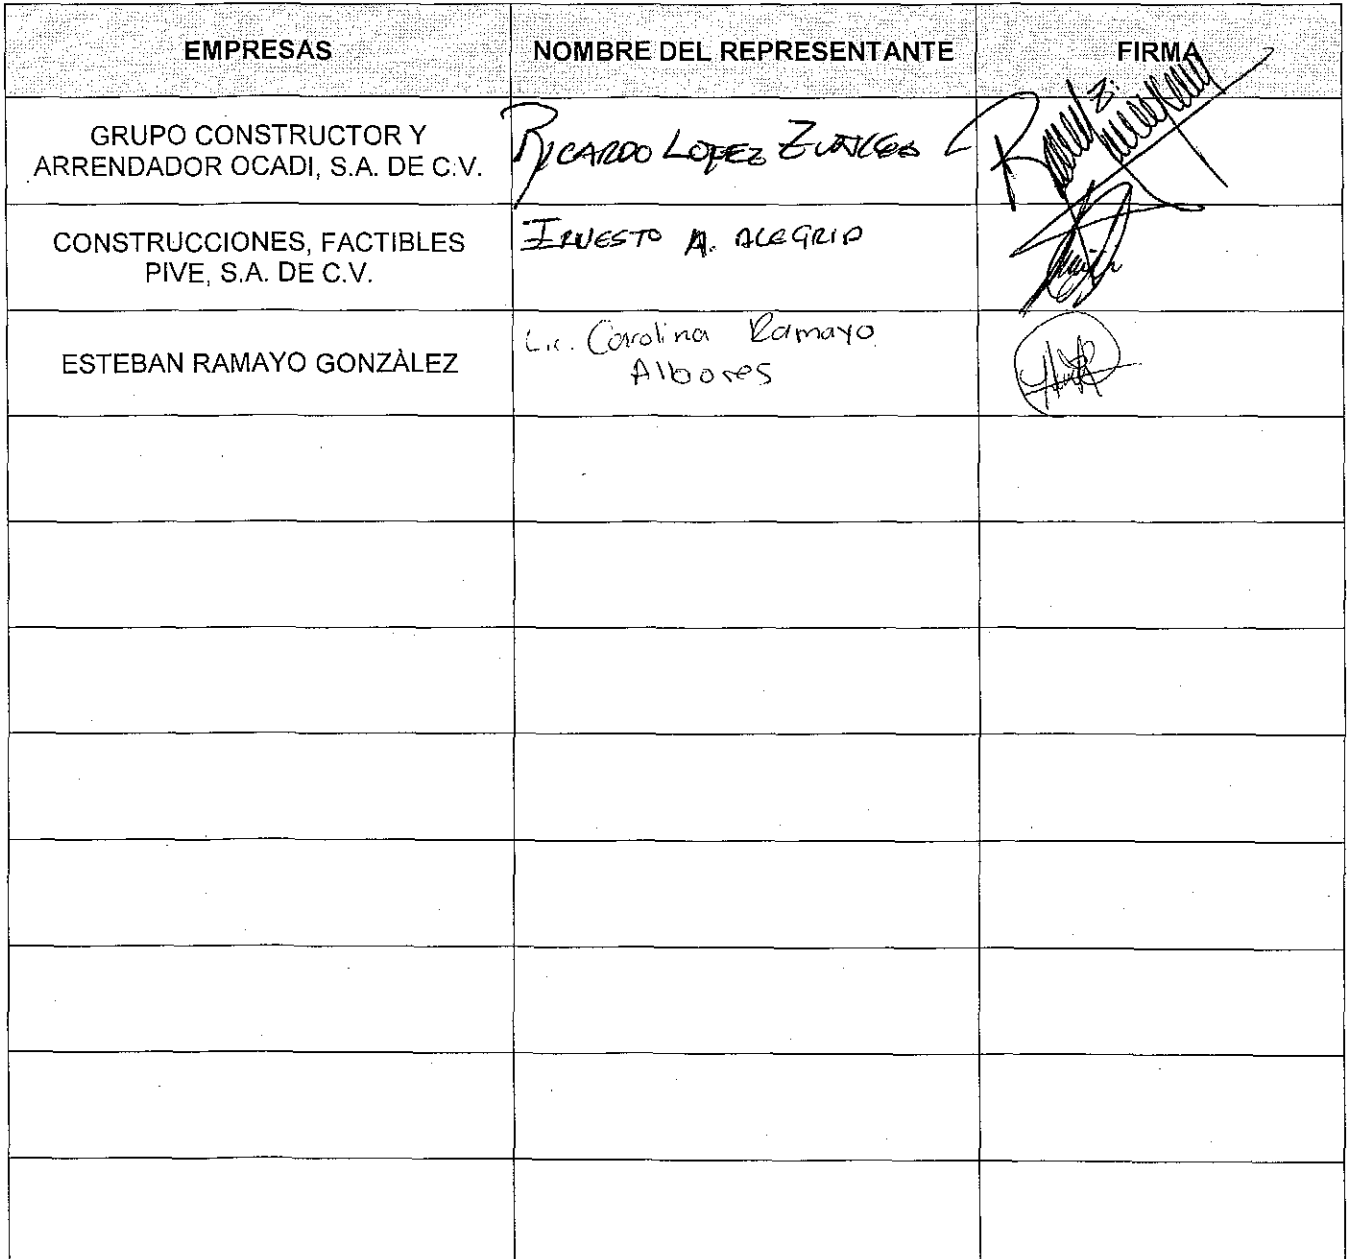 EMPRESAS
NOMBRE DEL REPRESENTANTE
FIRMA
GRUPO CONSTRUCTOR Y
ARRENDADOR OCADI, S.A. DE C.V.
RICARDO LOPEZ
CONSTRUCCIONES, FACTIBLES
PIVE, S.A. DE C.V.
ERNESTO A. ALEGRIA
ESTEBAN RAMAYO GONZÀLEZ
Lic. Carolina Ramayo
Albores